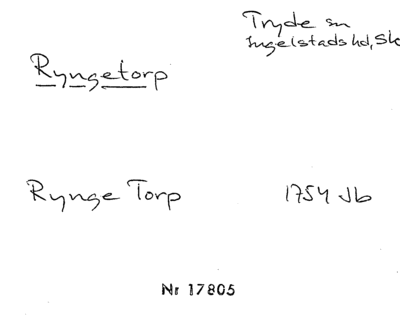 Tryde sn
Ingelstads hd, Sk
Ryngetorp
Rynge Torp 1754 Jb
Nr 17805